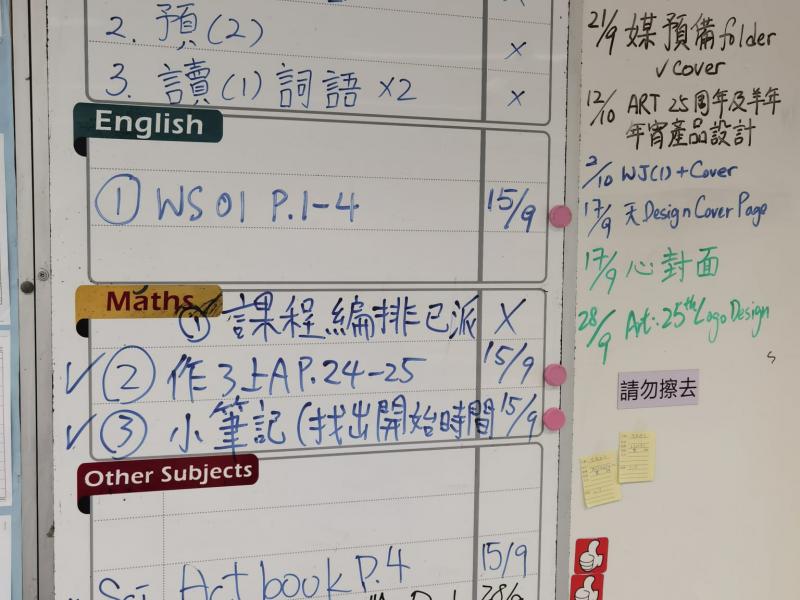 2. 預(2) x
3. 讀(1) 詞語 x2 x
English
① WS 01 P.1-4 15/9
Maths
① 課程編排已派 X
✓ ② 作3上A P.24-25 15/9
✓ ③ 小筆記(找出開始時間 15/9
Other Subjects
Act book P.4 15/9
28/9
21/9 媒預備folder
✓cover
12/10 ART 25周年及羊年
年宵產品設計
2/10 WJ(1)+Cover
17/9 天Design Cover Page
17/9 心封面
28/9 Art:25th Logo Design
請勿擦去